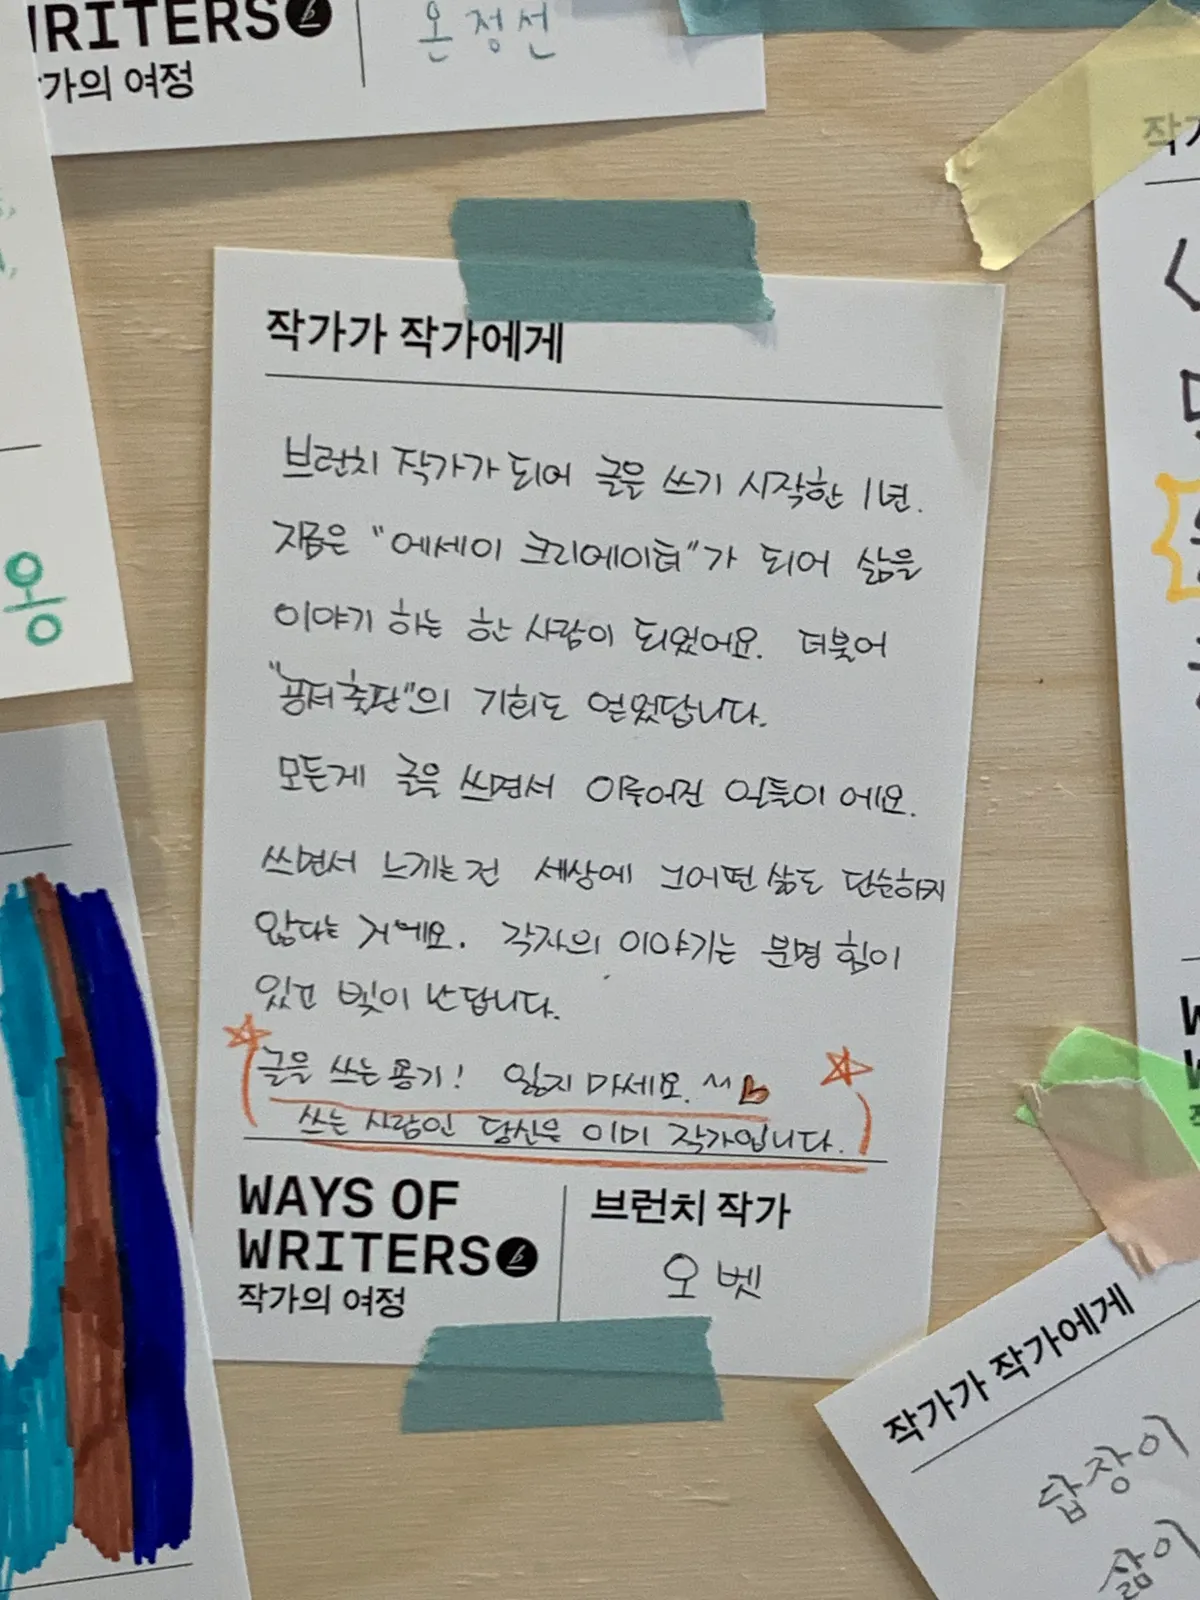 WRITERS
온정선
작가의 여정
작가가 작가에게
브런치 작가가 되어 글을 쓰기 시작한 1년.
지금은 "에세이 크리에이터"가 되어 삶을
이야기 하는 한 사람이 되었어요. 더붙어
"공저출판"의 기회도 얻었답니다.
모든게 글을 쓰면서 이루어진 일들이에요.
쓰면서 느끼는건 세상에 그어떤 삶도 단순하지
않다는 거에요. 각자의 이야기는 분명 힘이
있고 빛이 난답니다.
글을 쓰는 용기! 잃지 마세요.^^
쓰는 사람인 당신은 이미 작가입니다.
WAYS OF
WRITERS
작가의 여정
브런치 작가
오벳
옹
작가가 작가에게
답장이
삶이